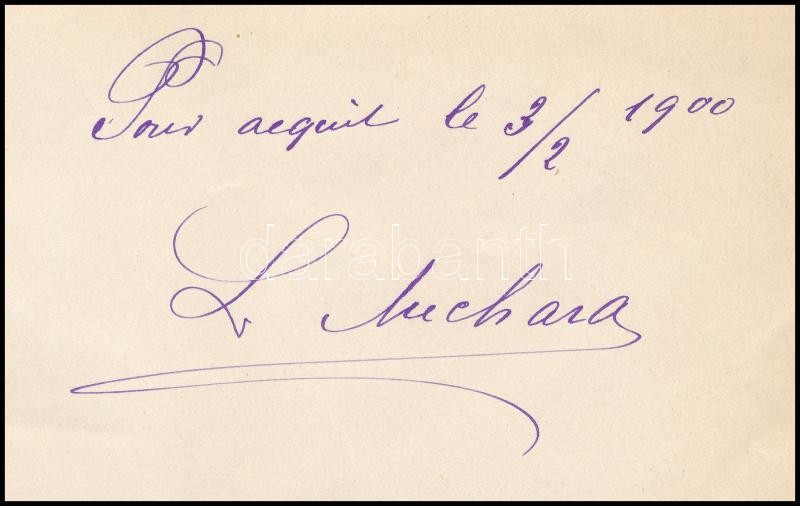 Pour acquit le 3/2 1900
darabanth
L. Michara